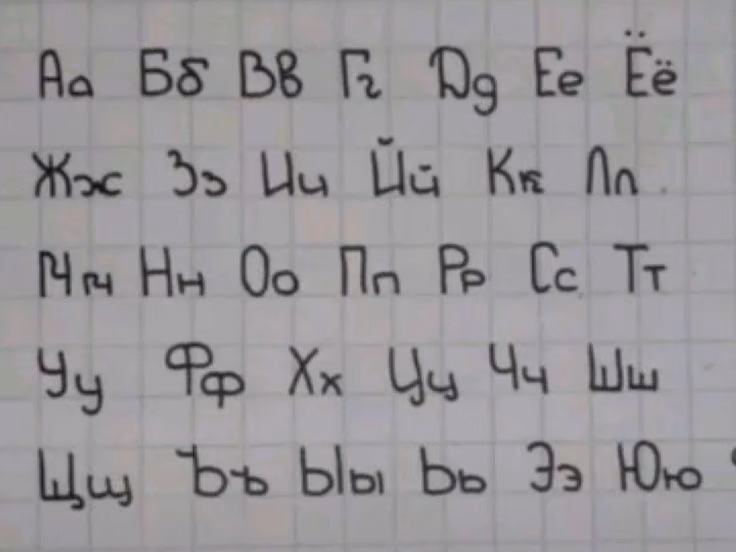 Аа Бб Вв Гг Дд Ее Ёё
Жж Зз Ии Йй Кк Лл
Мм Нн Оо Пп Рр Сс Тт
Уу Фф Хх Цц Чч Шш
Щщ Ъъ Ыы Ьь Ээ Юю